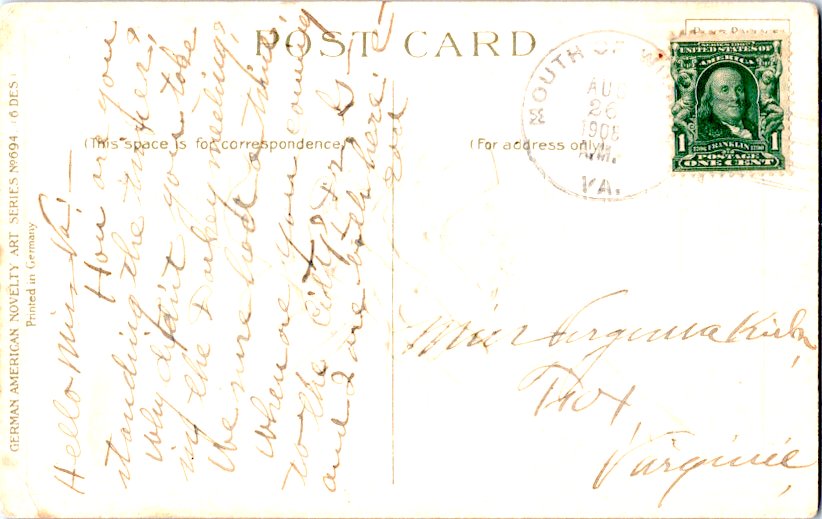 POST CARD
(This space is for correspondence)
(For address only)
GERMAN AMERICAN NOVELTY ART SERIES No 694 6 DES
Printed in Germany
SOUTH OF
AUG
26
1908
VA.
SERIES 1902
UNITED STATES OF
AMERICA
1 FRANKLIN 1
POSTAGE
ONE CENT
Hello Miss Va! —
How are you
standing the
Why don't you take
in the meeting?
We sure had a time
When are you coming
to the city?
and I are both here
Miss Virginia
Virginia